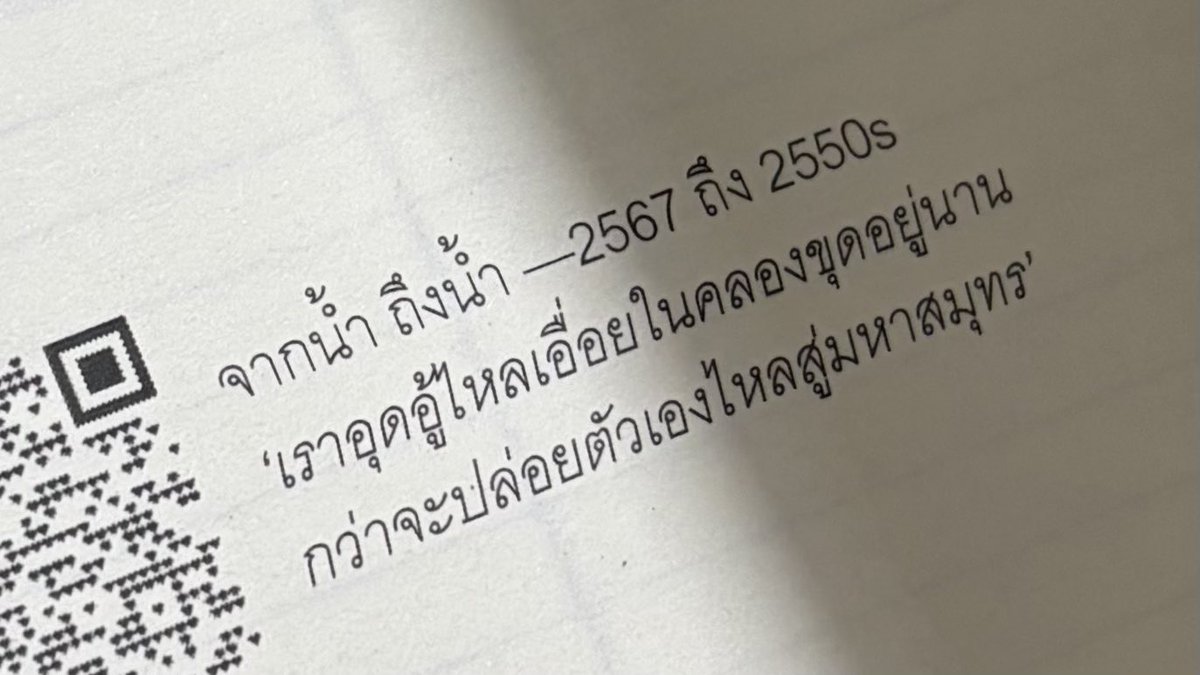 จากน้ำ ถึงน้ำ —2567 ถึง 2550s
‘เราอุดอู้ไหลเอื่อยในคลองขุดอยู่นาน
กว่าจะปล่อยตัวเองไหลสู่มหาสมุทร’